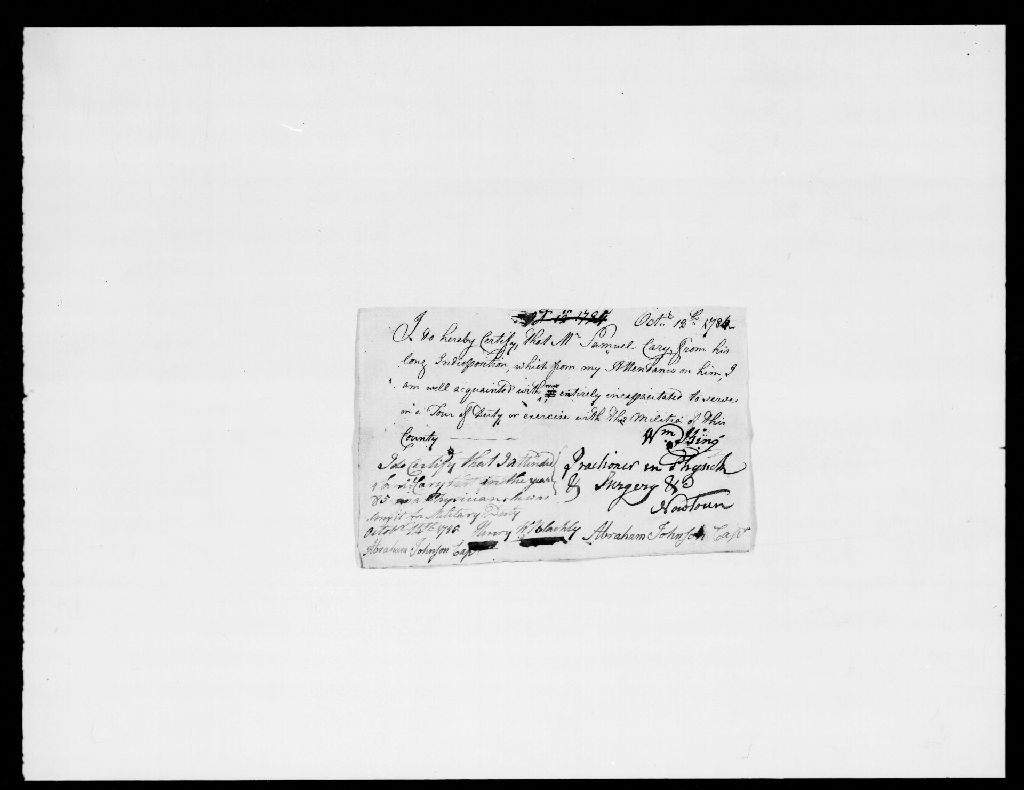 Oct.r 12th. 1786
I do hereby Certify, that Mr. Samuel Cary, from his
long Indisposition, which from my Attendance on him, I
am well acquainted with, entirely incapacitated to serve
in a Tour of Duty or exercise with the Militia of this
County
Wm. King
Practioner in Physick
& Surgery &c
NewTown
I do Certify that I attended
Cary in the year
85 as a Physician & was
unfit for Military Duty
October 14th 1786
Abraham Johnson Capt
Abraham Johnson Capt